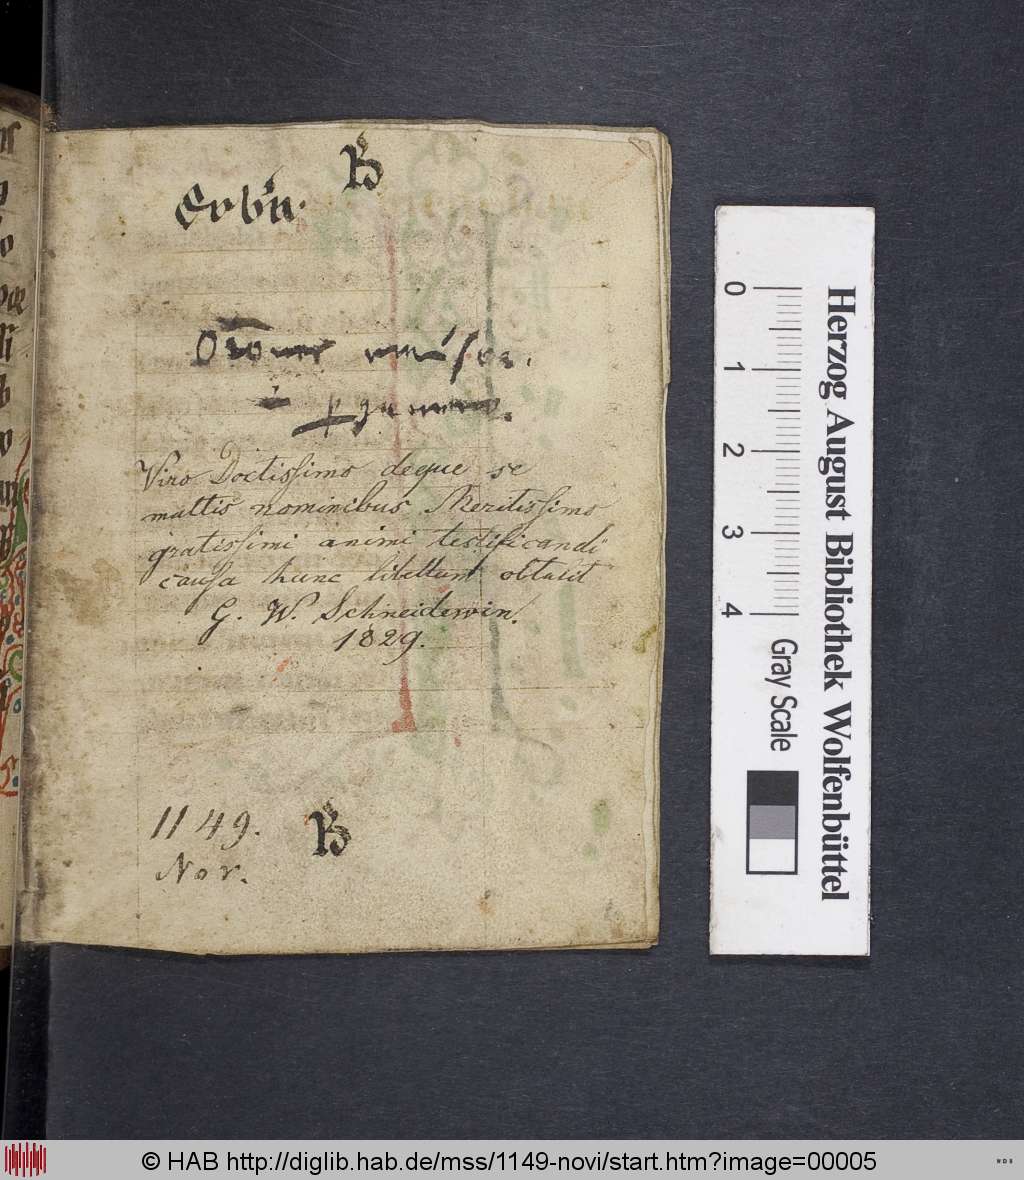 B
Viro Doctissimo deque se
multis nominibus Meritissimo
gratissimi animi testificandi
causa hunc libellum obtulit
G. W. Schneidewin.
1829.
1149.
Nov.
B
Herzog August Bibliothek Wolfenbüttel
0 1 2 3 4
Gray Scale
© HAB http://diglib.hab.de/mss/1149-novi/start.htm?image=00005